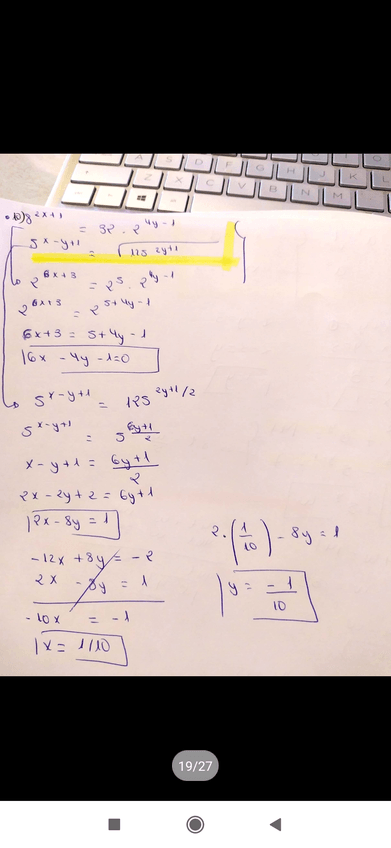 b) 8^2x+1 = 32 · 2^4y-1
5^x-y+1 = √125^2y+1
2^6x+3 = 2^5 · 2^4y-1
2^6x+3 = 2^5+4y-1
6x+3 = 5+4y-1
6x - 4y - 1=0
5^x-y+1 = 125^2y+1/2
5^x-y+1 = 5^6y+1/2
x-y+1 = 6y+1/2
2x-2y+2 = 6y+1
2x-8y = 1
-12x + 8y = -2
2x - 8y = 1
-10x = -1
x = 1/10
2·(1/10) - 8y = 1
y = -1/10
19/27